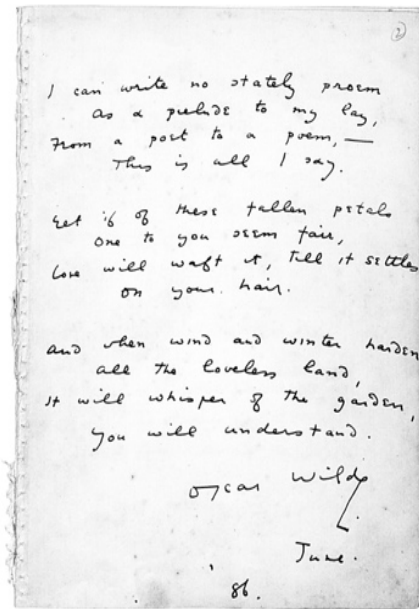 2
I can write no stately proem
As a prelude to my lay,
From a poet to a poem, —
This is all I say.
Yet if of these fallen petals
One to you seem fair,
Love will waft it, till it settles
On your hair.
And when wind and winter harden
All the loveless land,
It will whisper of the garden,
You will understand.
Oscar Wilde
June.
86.